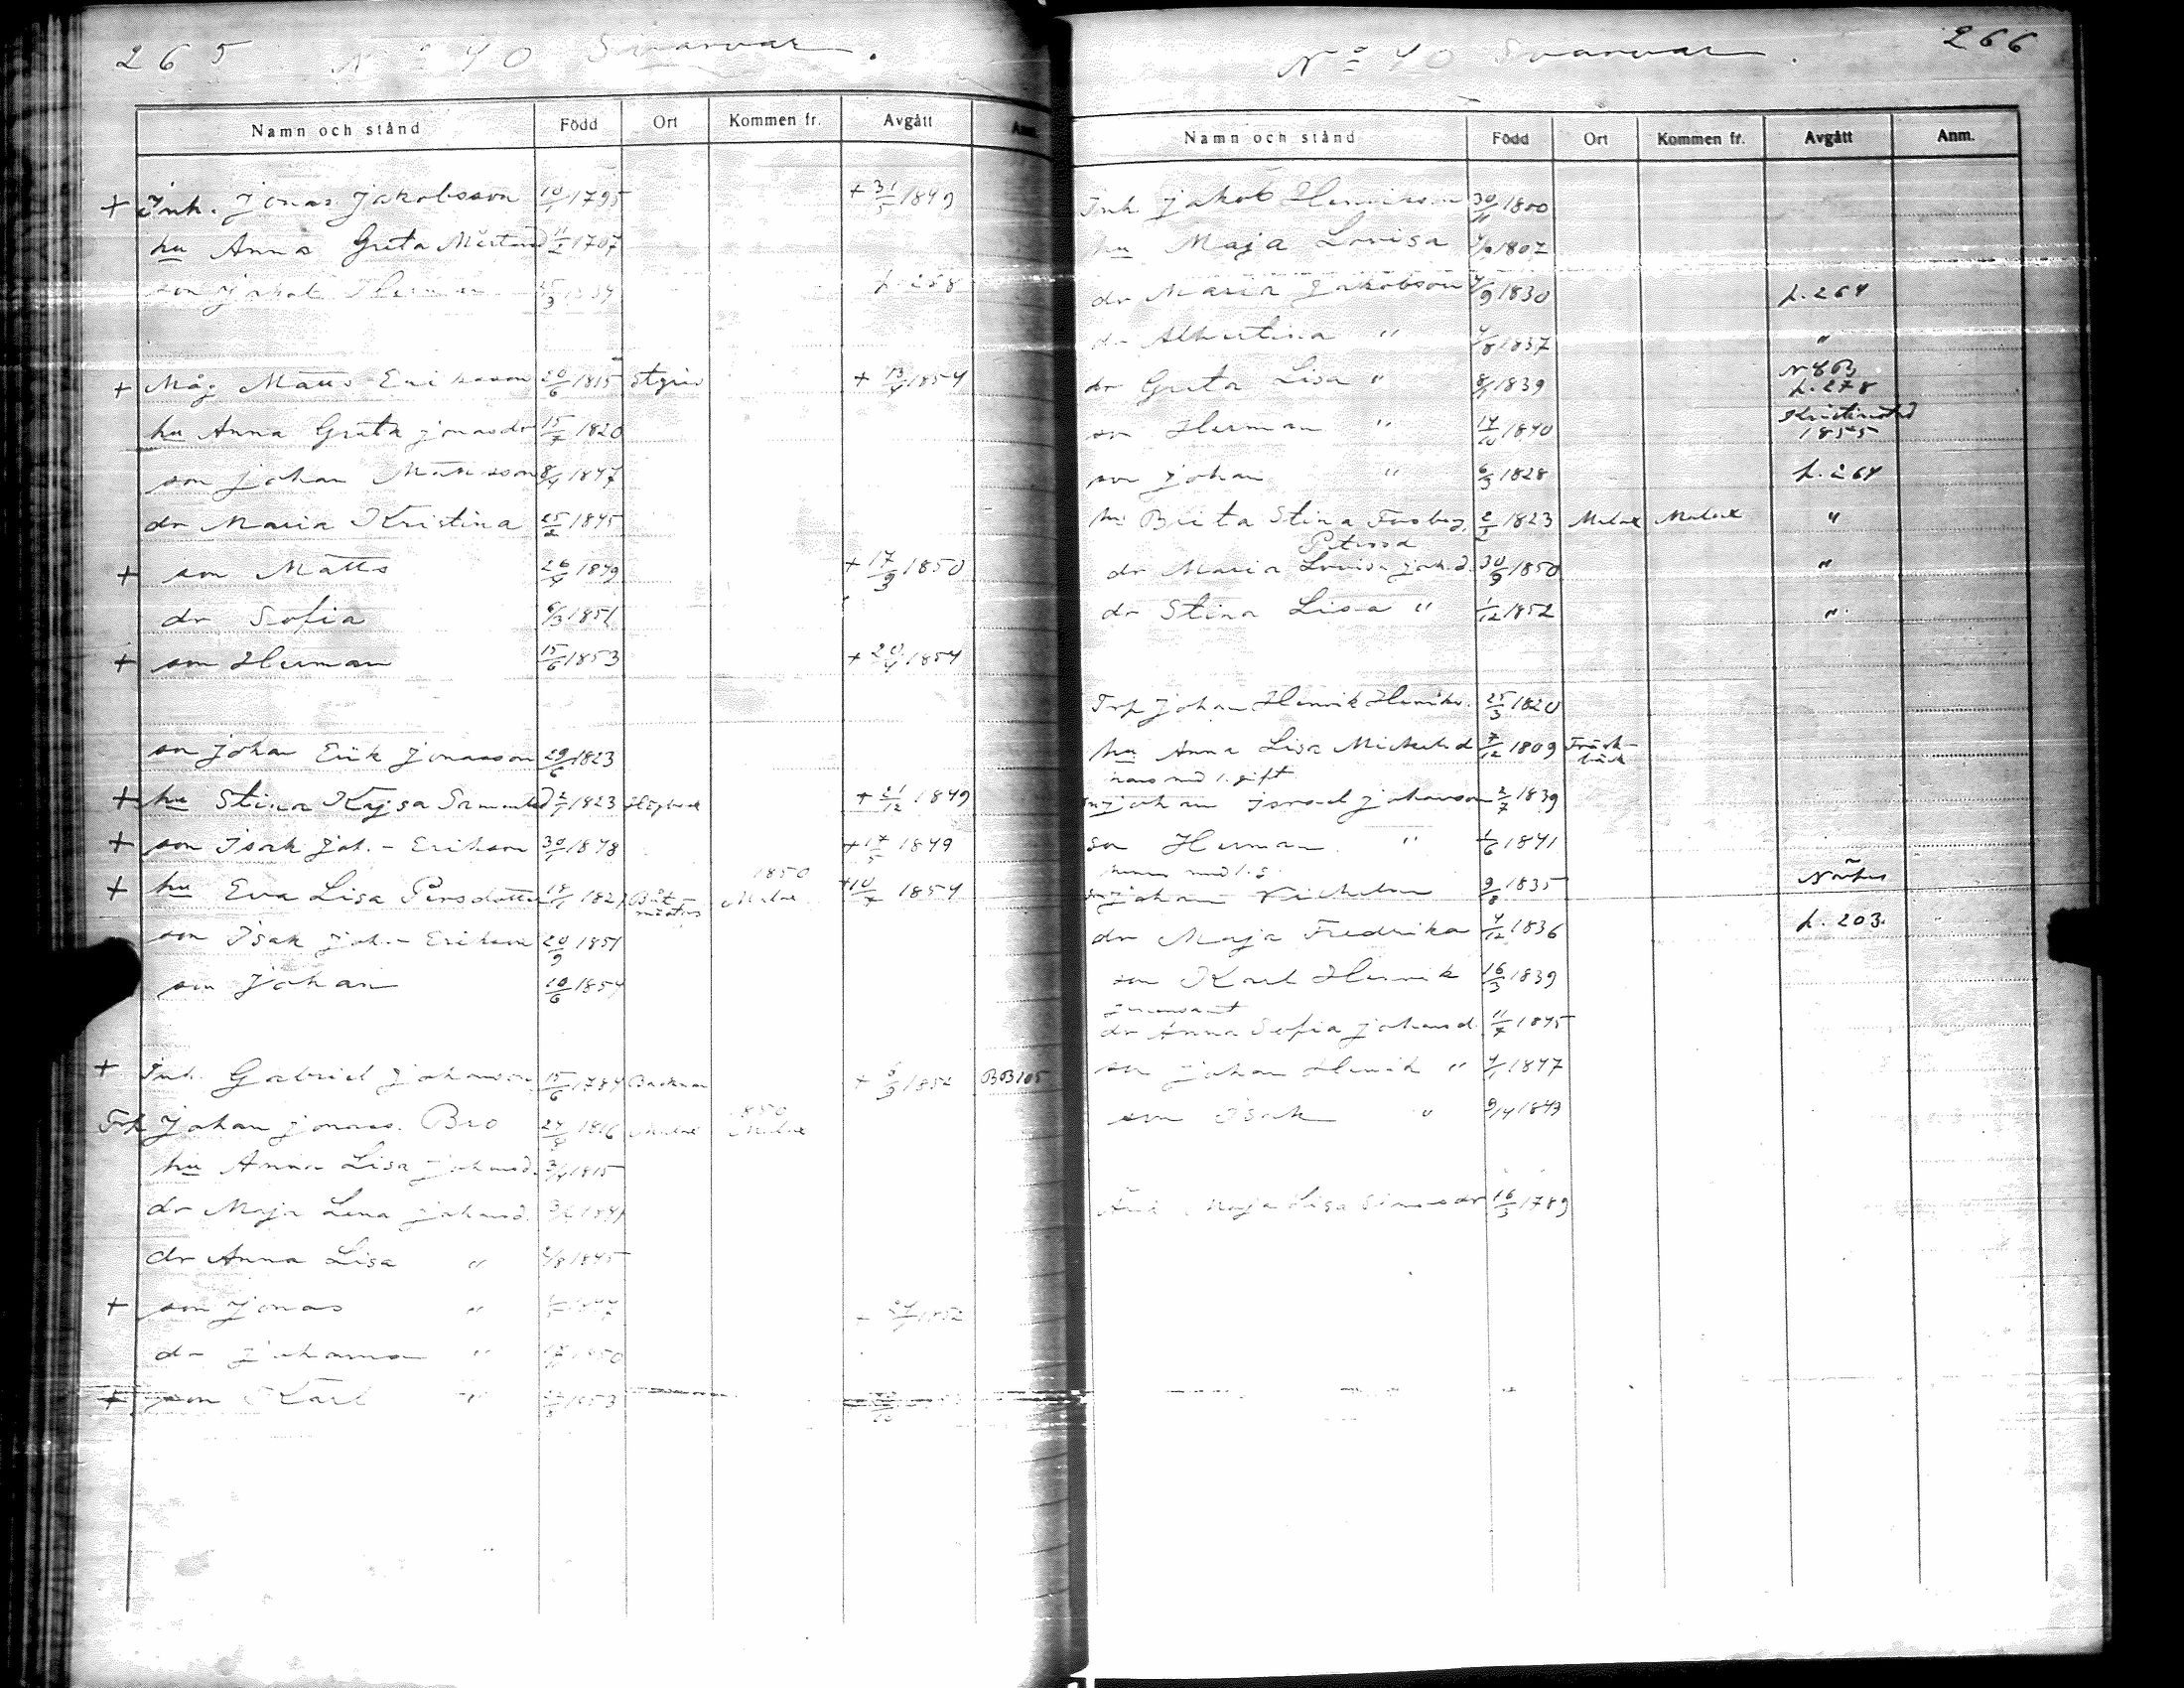 265 No 40 Svarvar.
Namn och stånd Född Ort Kommen fr. Avgått Anm.
+ Inh. Jonas Jakobsson 10/1 1795 + 31/5 1849
hu Anna Greta 11/2 1707
son Jakob Herman 25/3 1834 p. 268
+ Måg Matts Eriksson 20/6 1815 + 13/4 1854
hu Anna Greta Jonasdr 15/7 1820
son Johan Mattsson 8/4 1847
dr Maria Kristina 25/2 1845
+ son Matts 26/4 1849 + 17/3 1850
dr Sofia 6/3 1851
+ son Herman 15/6 1853 + 20/4 1854
son Johan Erik Jonasson 29/6 1823
+ hu Stina Kajsa 2/1 1823 Högback + 21/12 1849
+ son Isak Joh.-Erikson 30/1 1848 + 17/5 1849
+ hu Eva Lisa Persdotter 18/1 1821 1850 Malax + 10/7 1854
son Isak Joh.-Erikson 20/9 1851
son Johan 10/6 1854
+ Inh. Gabriel Johansson 15/6 1784 Backman + 3/3 1852 BB105
Johan Jonass. Bro 24/8 1816 Malax 1850 Malax
hu Anna Lisa Johansd. 3/4 1815
dr Maja Lena Johansd. 1841
dr Anna Lisa " 2/8 1845
+ son Jonas " 1847 1852
dr Johanna " 1850
+ son Karl " 1853
No 40 Svarvar. 266
Namn och stånd Född Ort Kommen fr. Avgått Anm.
Inh Jakob Henriksson 30/11 1800
hu Maja Lovisa 4/9 1802
dr Maria Jakobsson 4/9 1830 p. 264
dr Albertina " 4/8 1837 "
dr Greta Lisa " 8/1 1839 N 863 p. 278
son Herman " 14/10 1840 Kristinestad 1855
son Johan " 6/3 1828 p. 264
hu Brita Stina 2/2 1823 Malax Malax "
Petersd
dr Maria Lovisa Joh.d. 30/9 1850 "
dr Stina Lisa " 1/12 1852 "
Johan Henrik Henriks. 25/3 1820
hu Anna Lisa Mickelsd 7/12 1809
hans med 1. gift
Johan Israel Johansson 2/7 1839
son Herman " 1/6 1841
hennes med 1. g.
Johan Vilhelm 9/8 1835 Närpes
dr Maja Fredrika 4/12 1836 p. 203.
son Karl Henrik 16/3 1839
dr Anna Sofia Johansd. 11/7 1845
son Johan Henrik " 4/1 1847
son Isak " 9/4 1849
Maja Lisa Simonsdr 16/3 1789